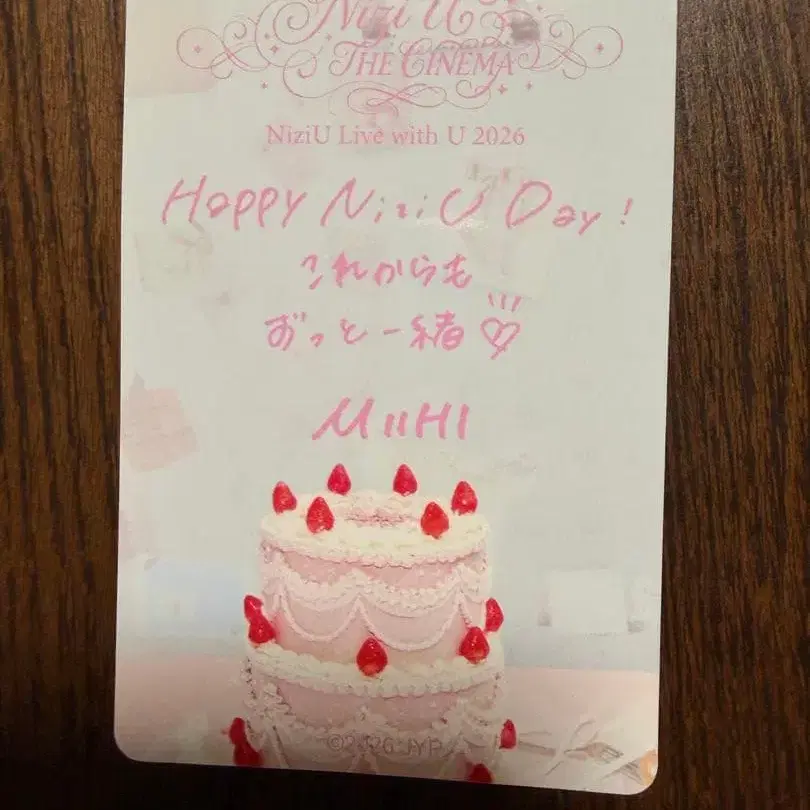 NiziU
THE CINEMA
NiziU Live with U 2026
Happy NiziU Day!
これからも
ずっと一緒♡
MIIHI
©2026 JYP